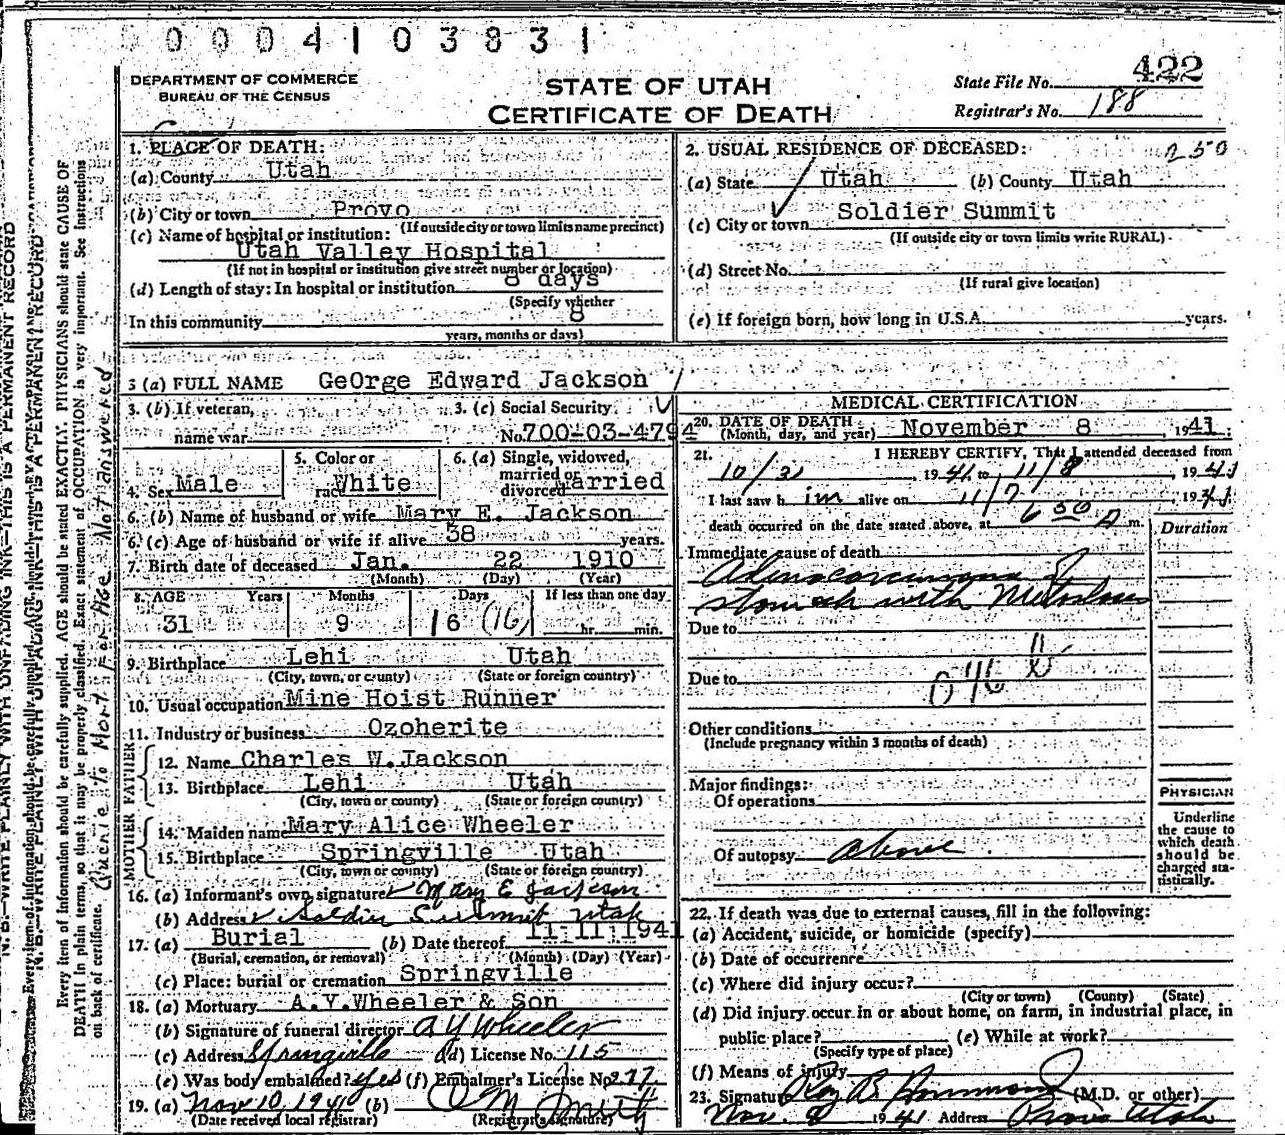 0 0 0 4 1 0 3 8 3 1
422
DEPARTMENT OF COMMERCE
BUREAU OF THE CENSUS
STATE OF UTAH
CERTIFICATE OF DEATH
State File No.
Registrar's No. 188
1. PLACE OF DEATH:
(a) County Utah
(b) City or town Provo
(If outside city or town limits name precinct)
(c) Name of hospital or institution:
Utah Valley Hospital
(If not in hospital or institution give street number or location)
(d) Length of stay: In hospital or institution 8 days
(Specify whether
In this community 8
years, months or days)
2. USUAL RESIDENCE OF DECEASED: 250
(a) State Utah (b) County Utah
(c) City or town Soldier Summit
(If outside city or town limits write RURAL)
(d) Street No.
(If rural give location)
(e) If foreign born, how long in U.S.A. years.
3 (a) FULL NAME GeOrge Edward Jackson
3. (b) If veteran, 3. (c) Social Security
name war No. 700-03-4794
4. Sex Male 5. Color or race White 6. (a) Single, widowed, married or divorced Married
6. (b) Name of husband or wife Mary E. Jackson
6. (c) Age of husband or wife if alive 38 years.
7. Birth date of deceased Jan. 22 1910
(Month) (Day) (Year)
8. AGE Years Months Days If less than one day
31 9 16 (16) hr. min.
9. Birthplace Lehi Utah
(City, town, or county) (State or foreign country)
10. Usual occupation Mine Hoist Runner
11. Industry or business Ozoherite
FATHER
12. Name Charles W. Jackson
13. Birthplace Lehi Utah
(City, town or county) (State or foreign country)
MOTHER
14. Maiden name Mary Alice Wheeler
15. Birthplace Springville Utah
(City, town or county) (State or foreign country)
16. (a) Informant's own signature Mary E Jackson
(b) Address Soldier Summit Utah
17. (a) Burial (b) Date thereof 11-11-1941
(Burial, cremation, or removal) (Month) (Day) (Year)
(c) Place: burial or cremation Springville
18. (a) Mortuary A.Y.Wheeler & Son
(b) Signature of funeral director A Y Wheeler
(c) Address Springville (d) License No. 115
(e) Was body embalmed? yes (f) Embalmer's License No. 277
19. (a) Nov 10, 1941 (b)
(Date received local registrar) (Registrar's signature)
MEDICAL CERTIFICATION
20. DATE OF DEATH
(Month, day, and year) November 8, 1941
21. I HEREBY CERTIFY, That I attended deceased from
10/31, 1941, to 11/8, 1941
I last saw him alive on 11/7, 1941
death occurred on the date stated above, at 6 50 A m.
Duration
Immediate cause of death
Adenocarcinoma of
stomach with Metastases
Due to
Due to
046
Other conditions
(Include pregnancy within 3 months of death)
Major findings:
Of operations
Of autopsy above
PHYSICIAN
Underline
the cause to
which death
should be
charged sta-
tistically.
22. If death was due to external causes, fill in the following:
(a) Accident, suicide, or homicide (specify)
(b) Date of occurrence
(c) Where did injury occur?
(City or town) (County) (State)
(d) Did injury occur in or about home, on farm, in industrial place, in
public place? (e) While at work?
(Specify type of place)
(f) Means of injury
23. Signature Roy B. Hammond (M.D. or other)
Nov. 8 1941 Address Provo Utah
N. B.—WRITE PLAINLY WITH UNFADING INK—THIS IS A PERMANENT RECORD
Every item of information should be carefully supplied. AGE should be stated EXACTLY. PHYSICIANS should state CAUSE OF
DEATH in plain terms, so that it may be properly classified. Exact statement of OCCUPATION is very important. See instructions
on back of certificate. Querie to Mort For Age Not answered